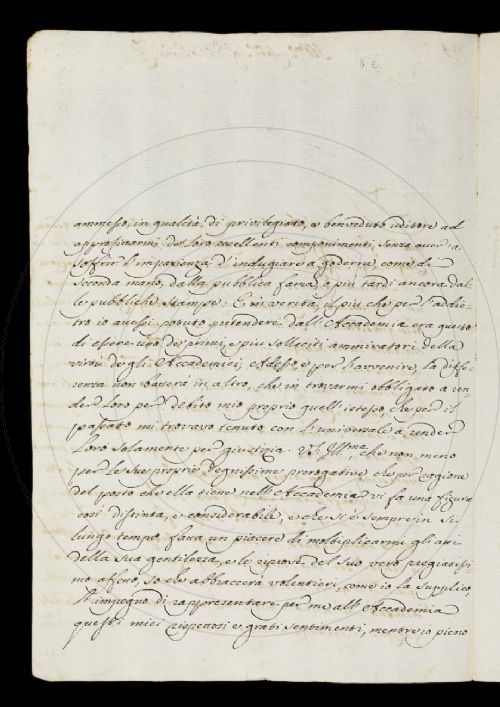 ammesso, in qualità di privilegiato, e benveduto uditore ad
approfittarmi de' loro eccellenti componimenti, senza aver a
soffrir l'impazienza d'indugiare a goderne come di
seconda mano, dalla pubblica fama, o più tardi ancora dal-
le pubbliche stampe. E in verità, il più che per l'addie-
tro io avessi potuto pretendere dall'Accademia era questo
di essere uno de' primi, e più solleciti ammiratori della
virtù degli Accademici. Adesso, e per l'avvenire, la diffe-
renza non batterà in altro, che in trovarmi obbligato a ren-
der loro per debito mio proprio quell'istesso, che per il
passato mi trovavo tenuto con l'universale a render
loro solamente per giustizia. V.S. Ill.ma, che non meno
per le sue proprie degnissime prerogative che per cagione
del posto che ella tiene nell'Accademia vi fa una figura
così distinta, e considerabile, e che si è sempre in sì
lungo tempo fatta un piacere di moltiplicarmi gli atti
della sua gentilezza, e le riprove del suo vero pregiatissi-
mo affetto, so che abbraccerà volentieri, come io la supplico,
l'impegno di rappresentare per me all'Accademia
questi miei rispettosi e grati sentimenti, mentre io pieno